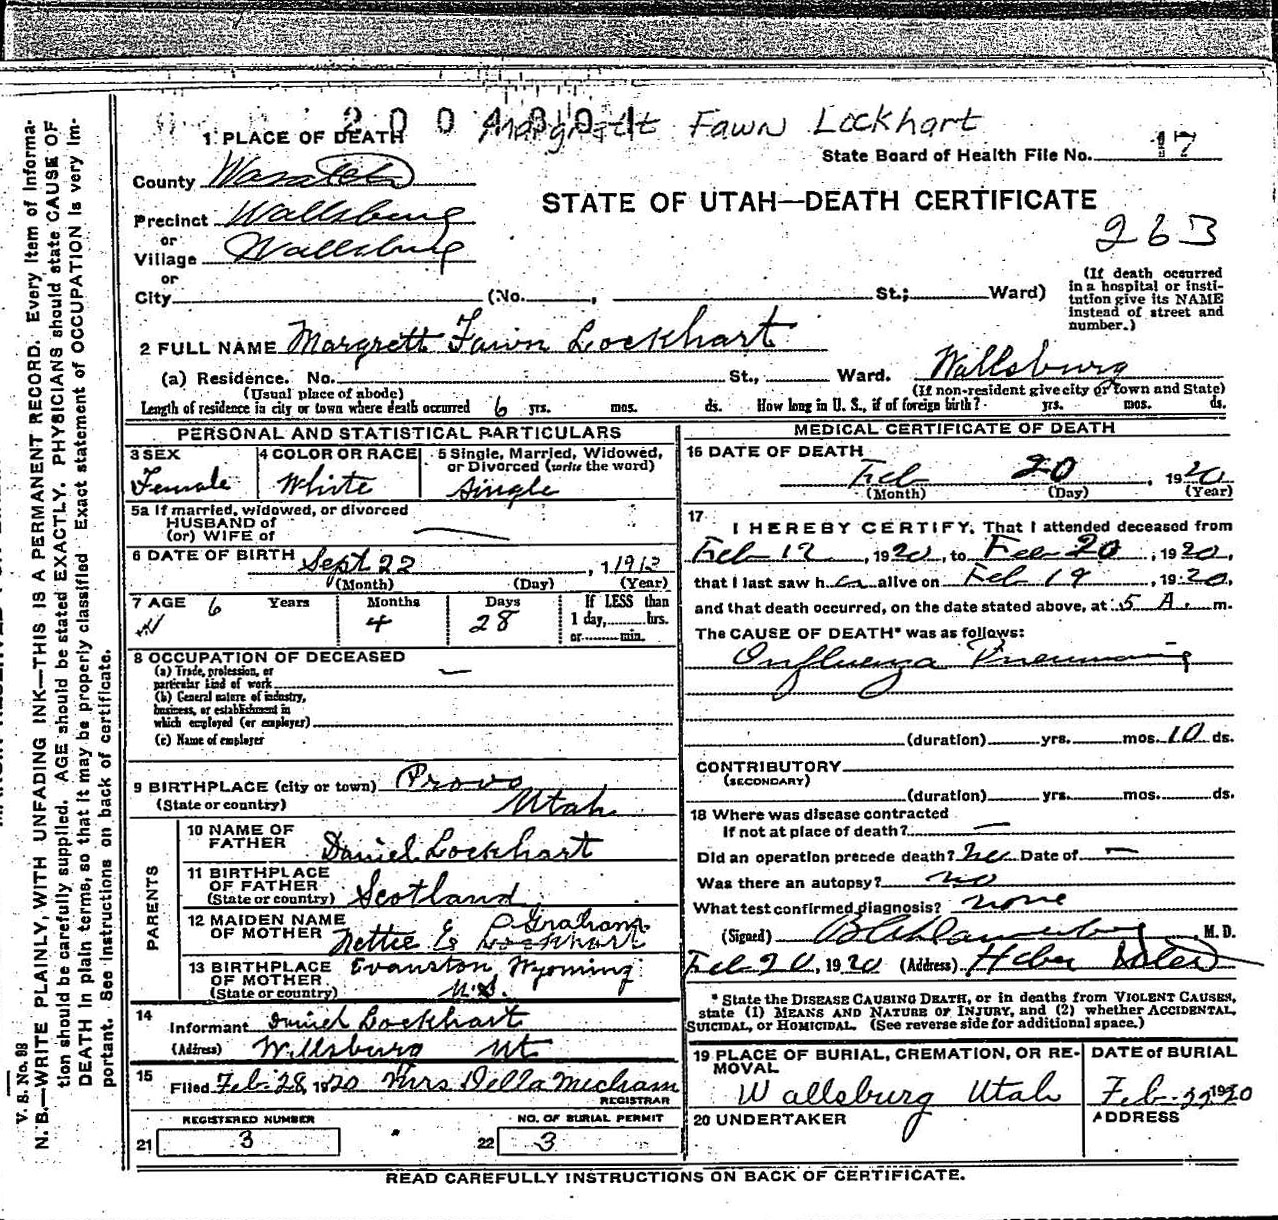 2004301
Margrett Fawn Lockhart
1 PLACE OF DEATH
State Board of Health File No. 17
County Wasatch
STATE OF UTAH—DEATH CERTIFICATE
Precinct Wallsburg
263
or
Village Wallsburg
or
City (No. , St.; Ward)
(If death occurred
in a hospital or insti-
tution give its NAME
instead of street and
number.)
2 FULL NAME Margrett Fawn Lockhart
(a) Residence. No. St., Ward. Wallsburg
(Usual place of abode) (If non-resident give city or town and State)
Length of residence in city or town where death occurred 6 yrs. mos. ds. How long in U. S., if of foreign birth? yrs. mos. ds.
PERSONAL AND STATISTICAL PARTICULARS
3 SEX 4 COLOR OR RACE 5 Single, Married, Widowed,
or Divorced (write the word)
Female White Single
5a If married, widowed, or divorced
HUSBAND of
(or) WIFE of
6 DATE OF BIRTH Sept 22, 1 1913
(Month) (Day) (Year)
7 AGE 6 Years Months Days If LESS than
4 28 1 day, hrs.
or min.
8 OCCUPATION OF DECEASED
(a) Trade, profession, or
particular kind of work —
(b) General nature of industry,
business, or establishment in
which employed (or employer)
(c) Name of employer
9 BIRTHPLACE (city or town) Provo
(State or country) Utah
PARENTS
10 NAME OF
FATHER Daniel Lockhart
11 BIRTHPLACE
OF FATHER
(State or country) Scotland
12 MAIDEN NAME
OF MOTHER Nettie E Graham
Lockhart
13 BIRTHPLACE
OF MOTHER
(State or country) Evanston, Wyoming
U.S.
14
Informant Daniel Lockhart
(Address) Wallsburg Ut
15
Filed Feb-28, 1920 Mrs Della Mecham
REGISTRAR
REGISTERED NUMBER NO. OF BURIAL PERMIT
21 3 22 3
MEDICAL CERTIFICATE OF DEATH
16 DATE OF DEATH
Feb 20, 1920
(Month) (Day) (Year)
17
I HEREBY CERTIFY, That I attended deceased from
Feb-12, 1920, to Feb-20, 1920,
that I last saw her alive on Feb 19, 1920,
and that death occurred, on the date stated above, at 5 A. m.
The CAUSE OF DEATH* was as follows:
Influenza Pneumonia
(duration) yrs. mos. 10 ds.
CONTRIBUTORY
(SECONDARY)
(duration) yrs. mos. ds.
18 Where was disease contracted
If not at place of death? —
Did an operation precede death? no Date of —
Was there an autopsy? no
What test confirmed diagnosis? none
(Signed) M. D.
Feb-20, 1920 (Address) Heber
* State the DISEASE CAUSING DEATH, or in deaths from VIOLENT CAUSES,
state (1) MEANS AND NATURE OF INJURY, and (2) whether ACCIDENTAL,
SUICIDAL, or HOMICIDAL. (See reverse side for additional space.)
19 PLACE OF BURIAL, CREMATION, OR RE-
MOVAL
Wallsburg Utah
DATE of BURIAL
Feb 1920
20 UNDERTAKER
ADDRESS
READ CAREFULLY INSTRUCTIONS ON BACK OF CERTIFICATE.
V. S. No. 98
N. B.—WRITE PLAINLY, WITH UNFADING INK—THIS IS A PERMANENT RECORD. Every item of Informa-
tion should be carefully supplied. AGE should be stated EXACTLY. PHYSICIANS should state CAUSE OF
DEATH in plain terms, so that it may be properly classified. Exact statement of OCCUPATION is very im-
portant. See instructions on back of certificate.